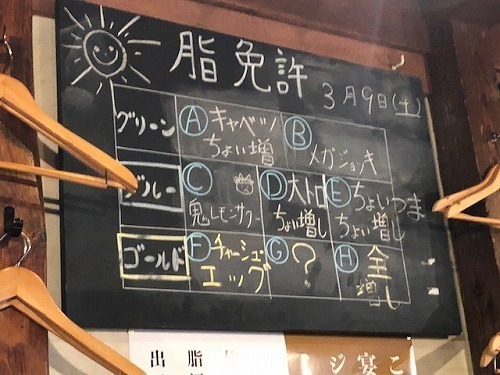 脂免許
3月9日(土)
グリーン
Ⓐキャベツ
ちょい増
Ⓑ
メガジョッキ
ブルー
Ⓒ
鬼レモンサワー
Ⓓ大トロ
ちょい増し
Ⓔちょいつま
ちょい増し
ゴールド
Ⓕチャーシュー
エッグ
Ⓖ?
Ⓗ全
増し
出 脂
ジ宴こ